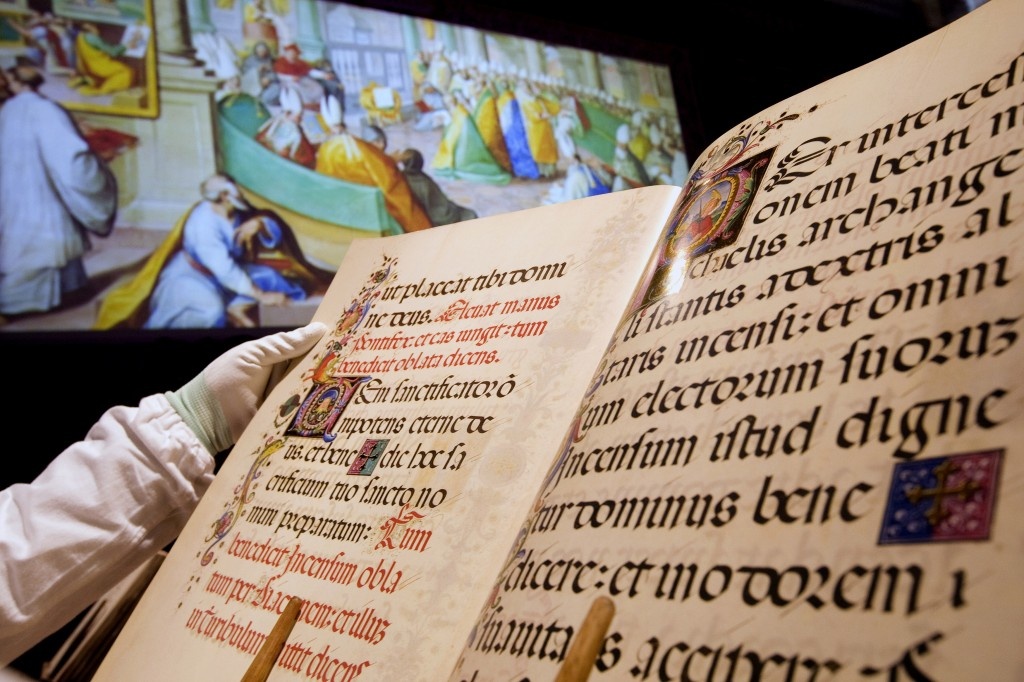 ut placeat tibi domi
ne deus. Acuat manus
pontifex et eas ungit: tum
benedicit oblata dicens.
Eni sanctificator o
nipotens eterne de
us. et bene dic hoc sa
crificium tuo sancto no
mini preparatum: Tum
benedicit Incensum obla
tum per Diaconem: et illuz
in Turibulum mittit dicens
Er intercessi
onem beati m
chaelis archange
li stantis a dextris al
taris incensi: et omni
um electorum suoruz
Incensum istud digne
tur dominus bene
dicere: et in odorem
suauitatis accipere